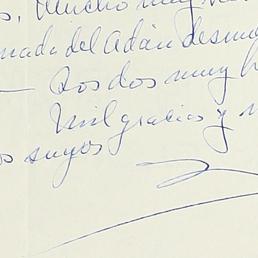 Mucho muy
nada del Adán desnu
— Los dos muy h
Mil gracias y
os suyos